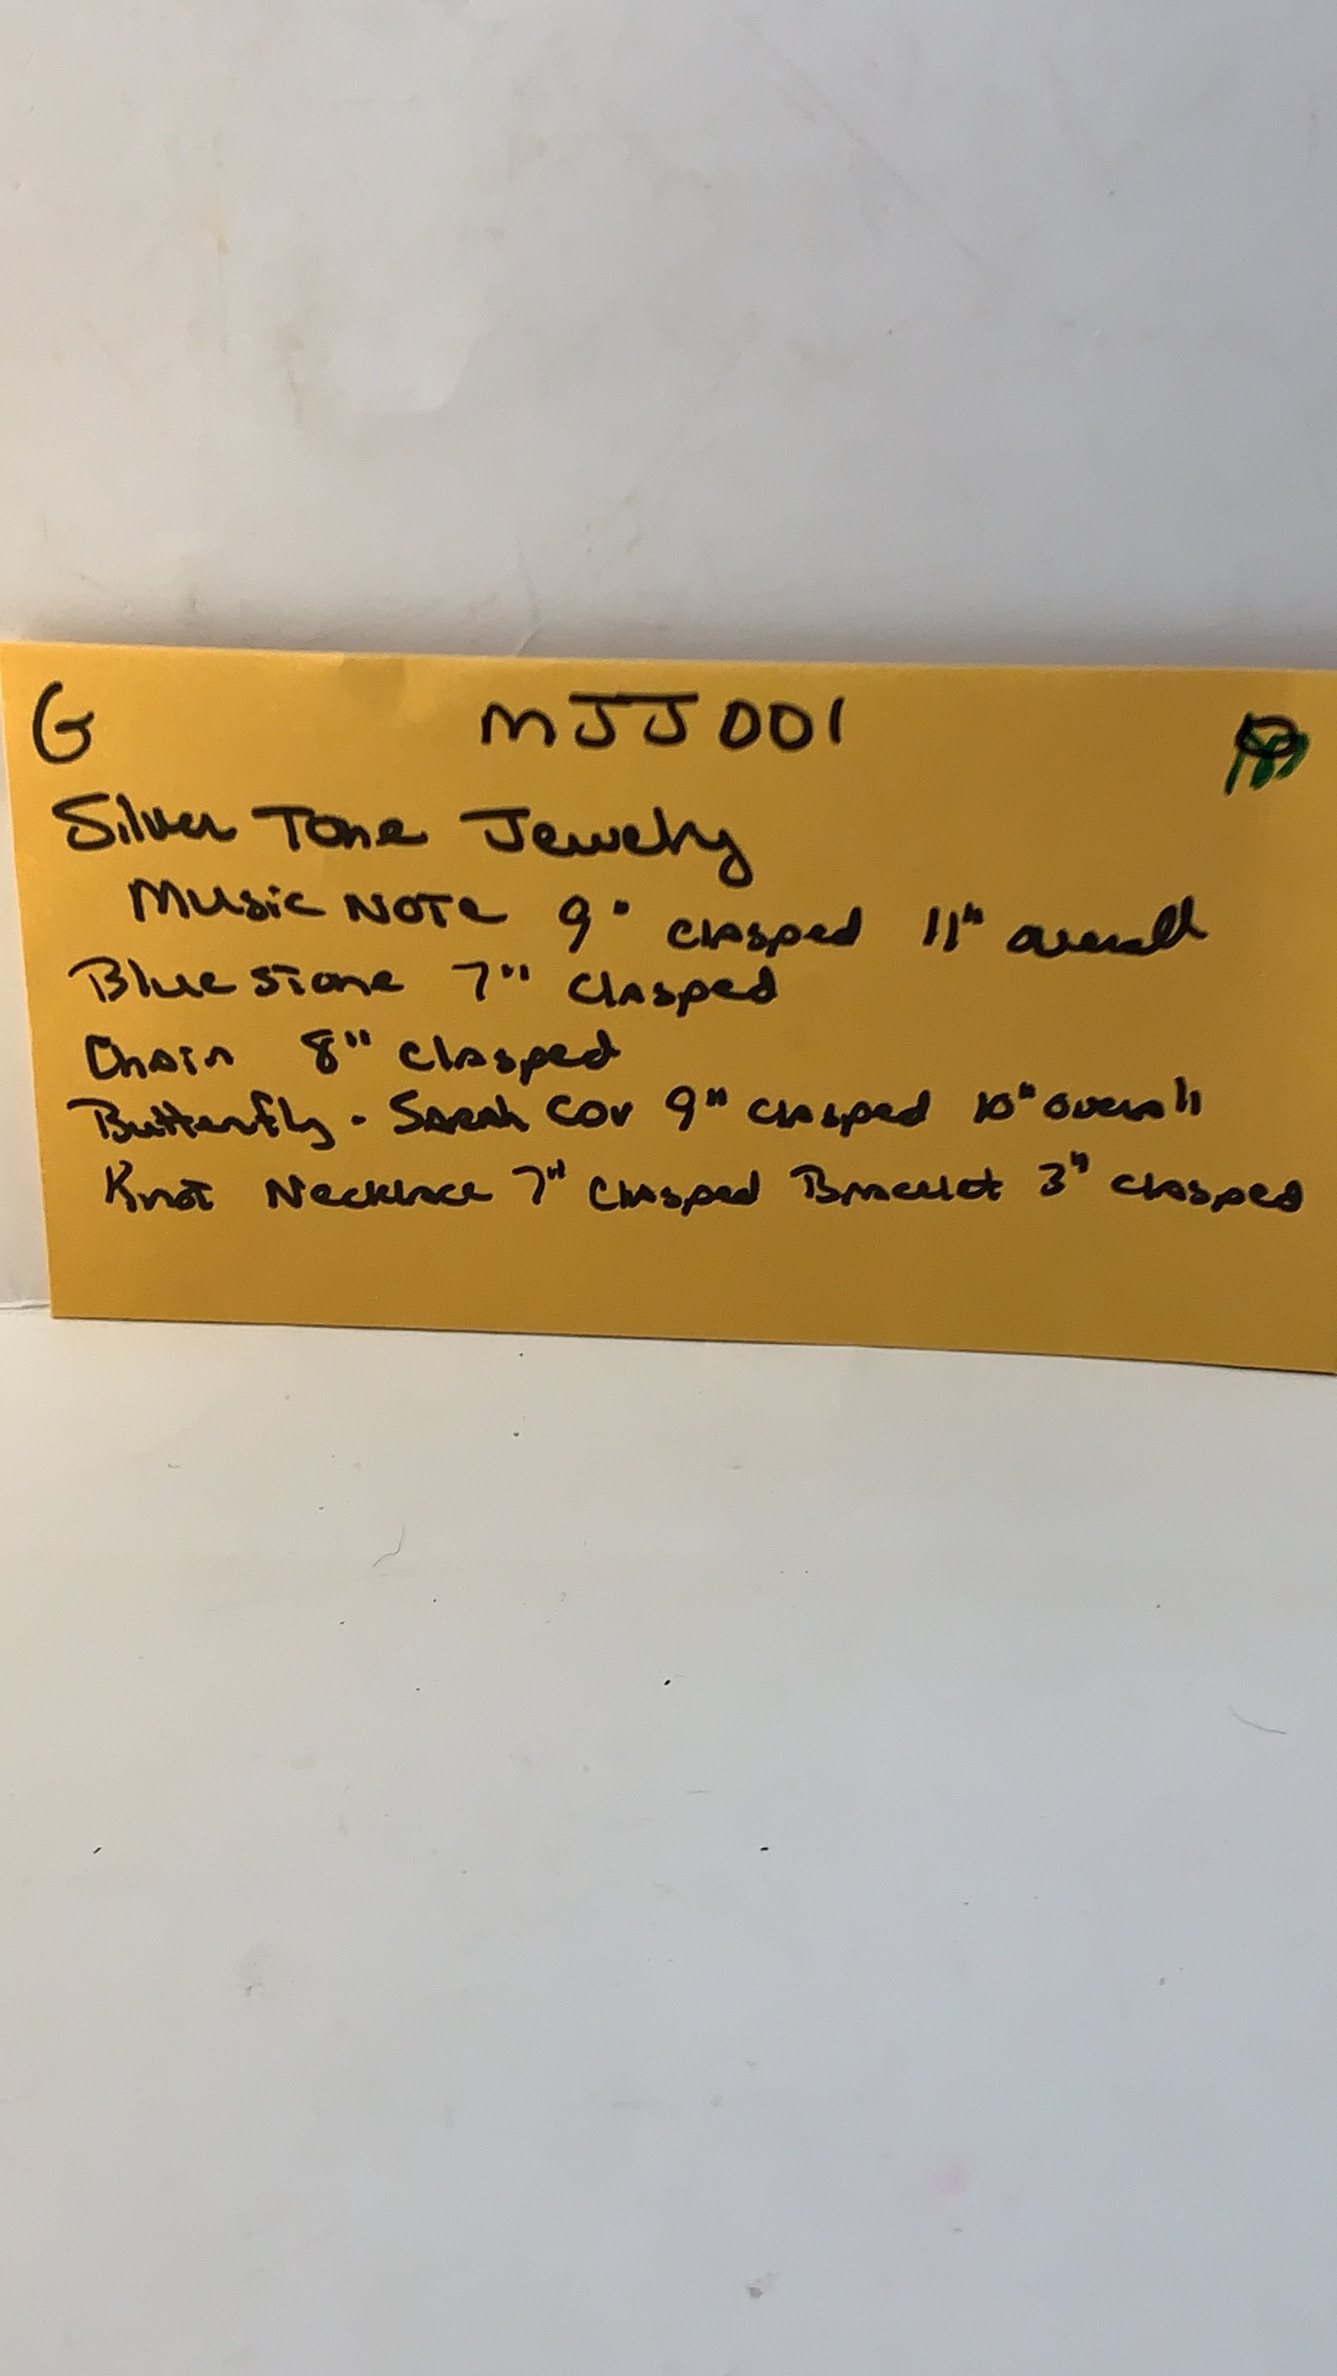 G MJJ001
Silver Tone Jewelry
Music Note 9" clasped 11" overall
Blue stone 7" clasped
Chain 8" clasped
Butterfly - Sarah Cov 9" clasped 10" overall
Knot Necklace 7" clasped Bracelet 3" clasped